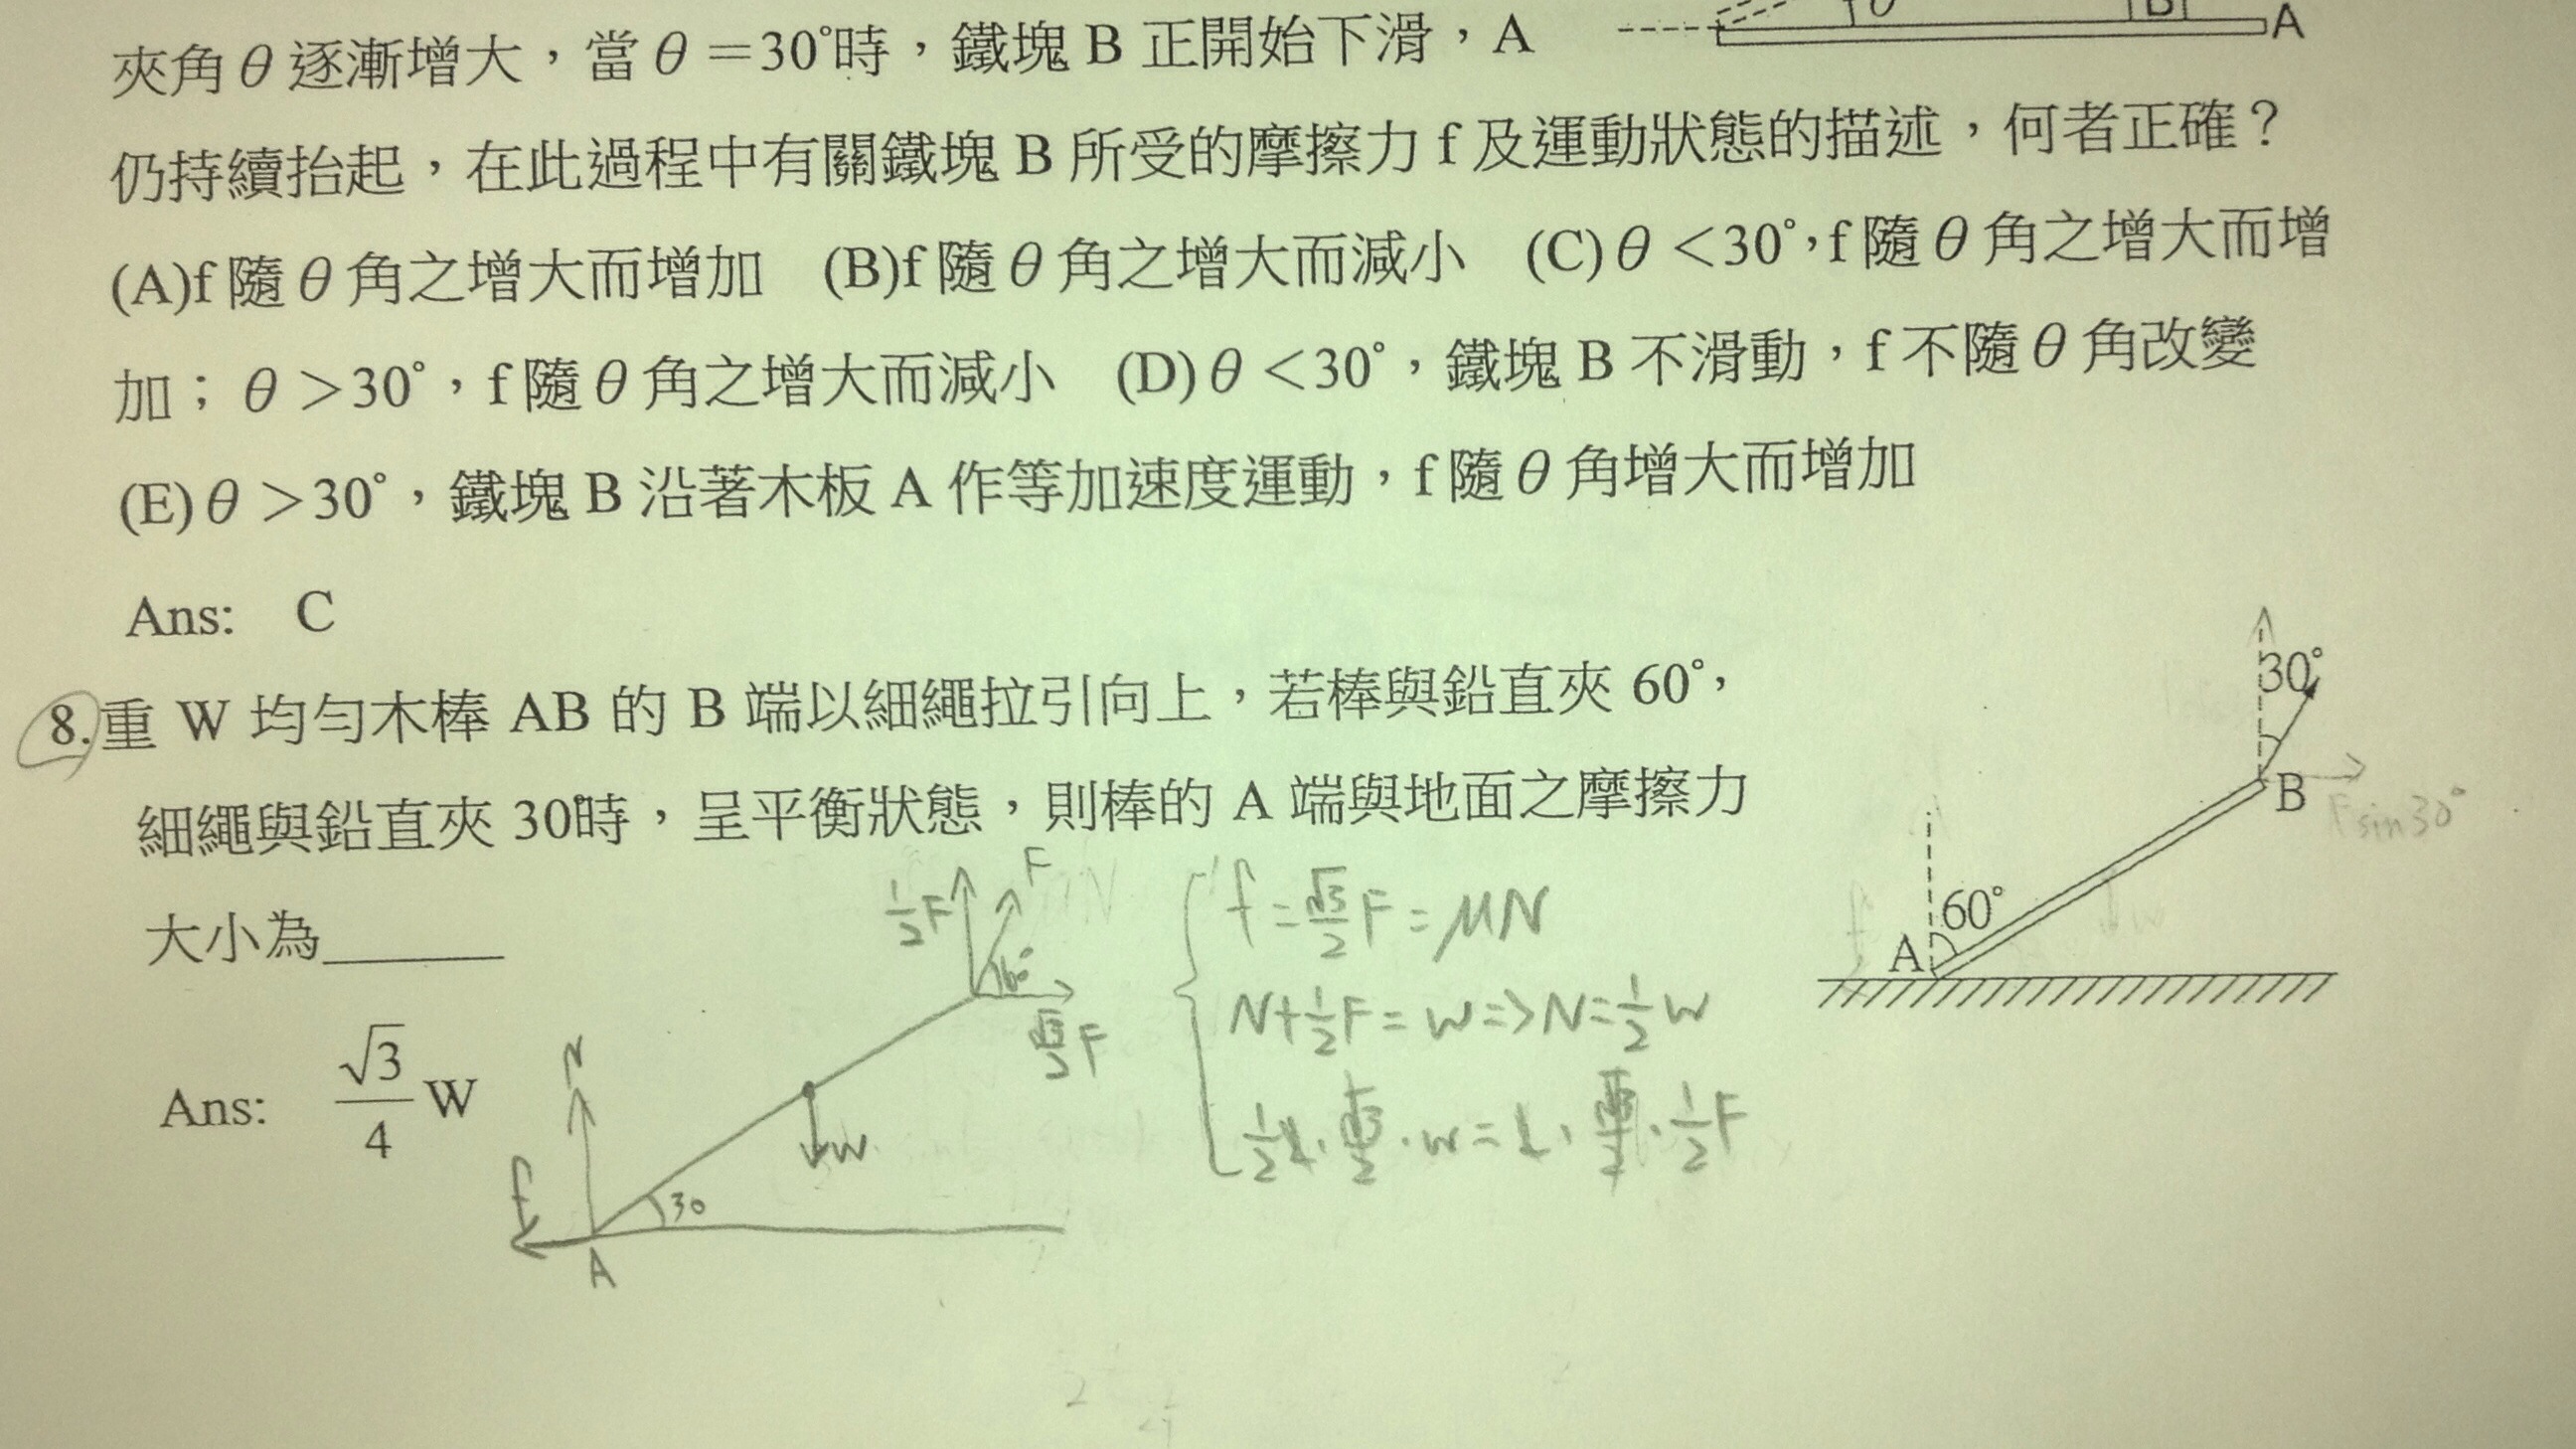 夾角θ逐漸增大，當θ＝30°時，鐵塊 B 正開始下滑，A
仍持續抬起，在此過程中有關鐵塊 B 所受的摩擦力 f 及運動狀態的描述，何者正確？
(A)f 隨θ角之增大而增加 (B)f 隨θ角之增大而減小 (C)θ＜30°，f 隨θ角之增大而增
加；θ＞30°，f 隨θ角之增大而減小 (D)θ＜30°，鐵塊 B 不滑動，f 不隨θ角改變
(E)θ＞30°，鐵塊 B 沿著木板 A 作等加速度運動，f 隨θ角增大而增加
Ans: C
θ B A
8.重 W 均勻木棒 AB 的 B 端以細繩拉引向上，若棒與鉛直夾 60°，
細繩與鉛直夾 30°時，呈平衡狀態，則棒的 A 端與地面之摩擦力
大小為______
Ans: √3/4 W
30°
B
Fsin30°
60°
A
f
W
1/2F
F
60°
√3/2F
N
W
f
30
A
f=√3/2F=μN
N+1/2F=W=>N=1/2W
1/2ℓ·√3/2·W=ℓ·√3/2·1/2F